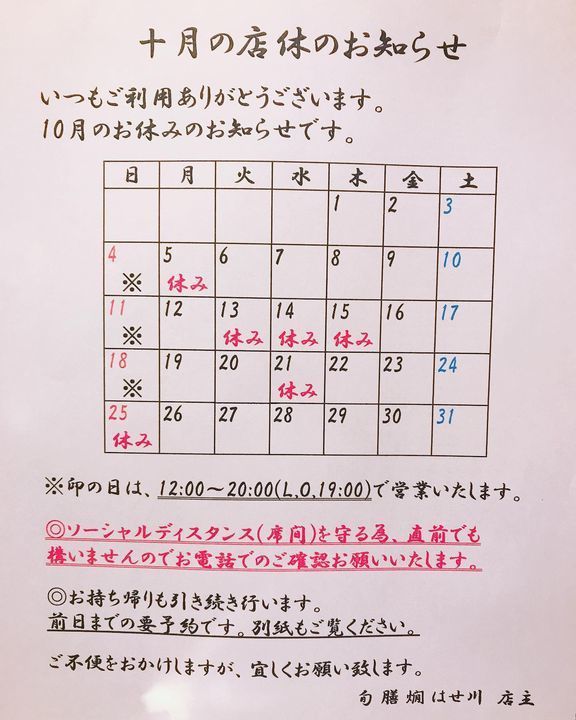 十月の店休のお知らせ
いつもご利用ありがとうございます。
10月のお休みのお知らせです。
日 月 火 水 木 金 土
1 2 3
4 5 6 7 8 9 10
※ 休み
11 12 13 14 15 16 17
※ 休み 休み 休み
18 19 20 21 22 23 24
※ 休み
25 26 27 28 29 30 31
休み
※印の日は、12:00～20:00(L,O,19:00)で営業いたします。
◎ソーシャルディスタンス(席間)を守る為、直前でも
構いませんのでお電話でのご確認お願いいたします。
◎お持ち帰りも引き続き行います。
前日までの要予約です。別紙もご覧ください。
ご不便をおかけしますが、宜しくお願い致します。
旬膳燗はせ川 店主